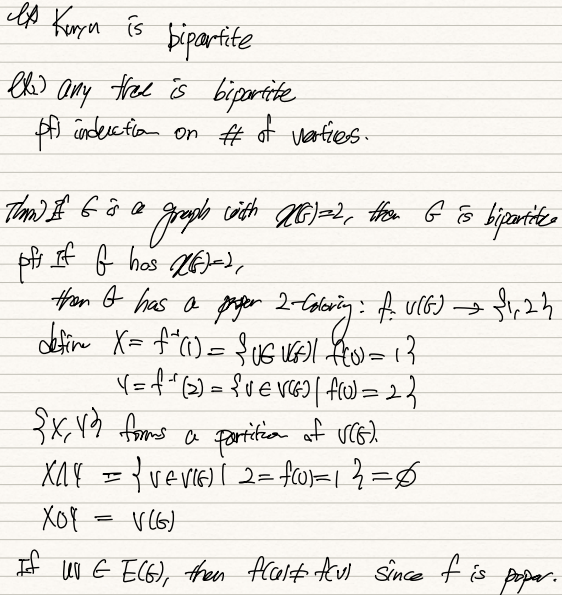 ex) Km,n is bipartite
ex2) any tree is bipartite
pf) induction on # of vertices.
Thm) If G is a graph with χ(G)=2, then G is bipartite
pf) If G has χ(G)=2,
then G has a proper 2-coloring: f: V(G) → {1,2}
define X = f⁻¹(1) = {v∈V(G) | f(v) = 1}
Y = f⁻¹(2) = {v∈V(G) | f(v) = 2}
{X,Y} forms a partition of V(G).
X∩Y = {v∈V(G) | 2=f(v)=1} = ∅
X∪Y = V(G)
If uv ∈ E(G), then f(u)≠f(v) since f is proper.